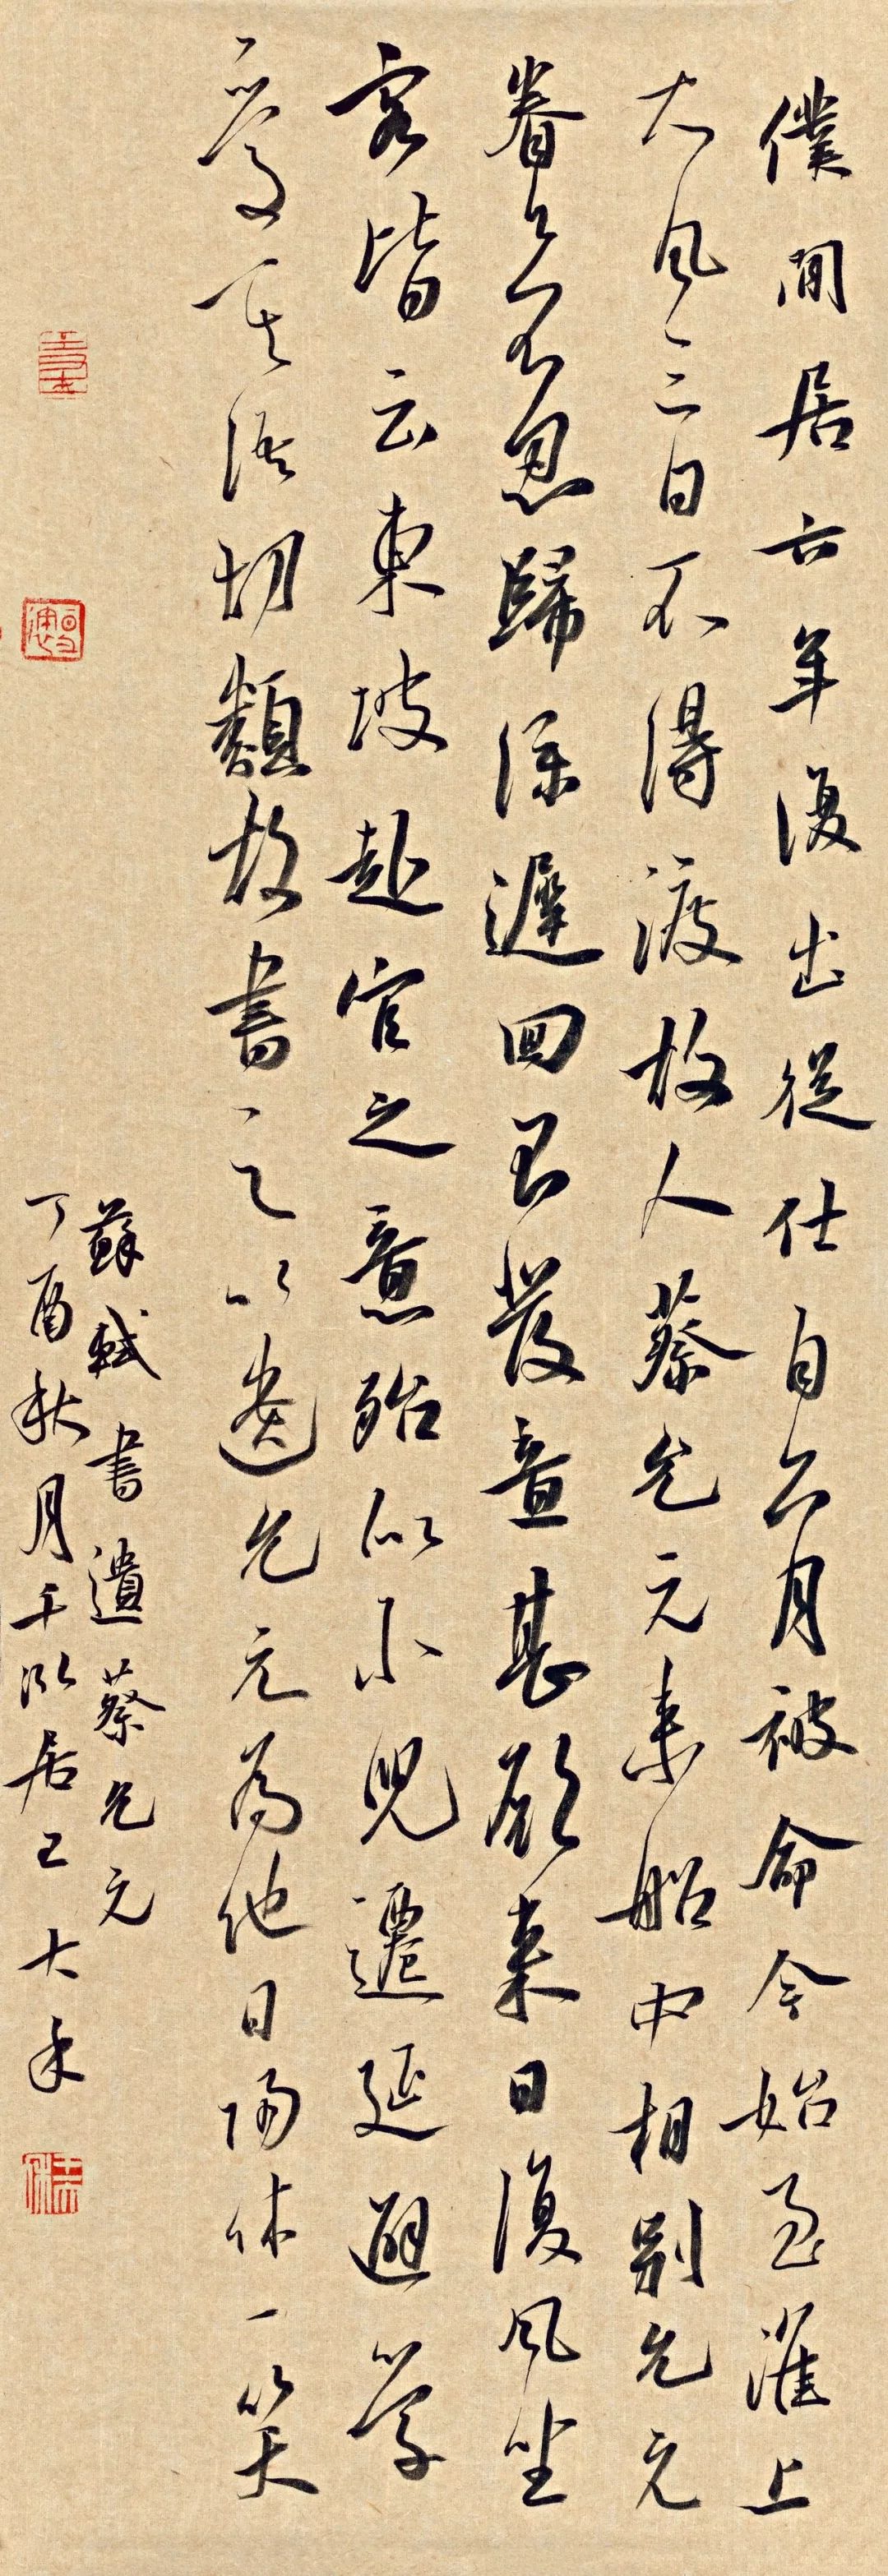 僕閒居六年復出從仕自六月被命今始至淮上
大風三日不得渡故人蔡允元來船中相別允元
眷眷不忍歸深遲回不發意甚願來日復風坐
客皆云東坡赴官之意殆似小兒遷延避學
愛其語切類故書之以遺允元為他日歸休一笑
蘇軾書遺蔡允元
丁酉秋月千泓居王大禾